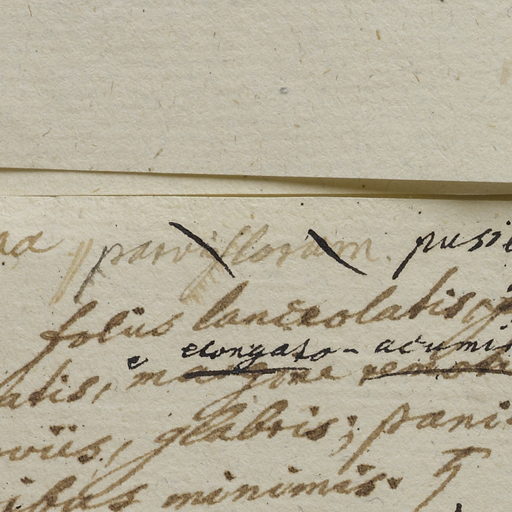 na parviflorum. pusi
foliis lanceolatis
e elongato-acumin
atis, margine remot
viis, glabris; pani
ibus minimis. ♄